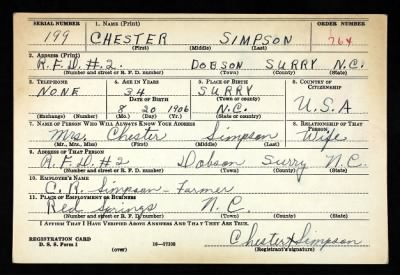 SERIAL NUMBER 1. NAME (Print) ORDER NUMBER
199 CHESTER SIMPSON 764
(First) (Middle) (Last)
2. ADDRESS (Print)
R.F.D. #2. DOBSON SURRY N.C.
(Number and street or R. F. D. number) (Town) (County) (State)
3. TELEPHONE 4. AGE IN YEARS 5. PLACE OF BIRTH 6. COUNTRY OF CITIZENSHIP
NONE 34 SURRY
DATE OF BIRTH (Town or county)
8 20 1906 N.C. U.S.A
(Exchange) (Number) (Mo.) (Day) (Yr.) (State or country)
7. NAME OF PERSON WHO WILL ALWAYS KNOW YOUR ADDRESS 8. RELATIONSHIP OF THAT PERSON
Mrs. Chester Simpson Wife
(Mr., Mrs., Miss) (First) (Middle) (Last)
9. ADDRESS OF THAT PERSON
R.F.D. #2 Dobson Surry N.C.
(Number and street or R. F. D. number) (Town) (County) (State)
10. EMPLOYER'S NAME
C.R. Simpson - Farmer
11. PLACE OF EMPLOYMENT OR BUSINESS
Red Springs N.C.
(Number and street or R. F. D. number) (Town) (County) (State)
I AFFIRM THAT I HAVE VERIFIED ABOVE ANSWERS AND THAT THEY ARE TRUE.
REGISTRATION CARD
D. S. S. Form 1 (over) 16-17105 Chester Simpson
(Registrant's signature)